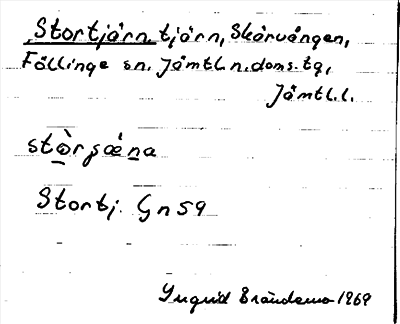 Stortjärn, tjärn, Skärvången,
Föllinge sn. Jämtl. n. doms. tg,
Jämtl. l.
stòrʂǽna
Stortj. Gn 59
Ingrid Brändemo 1969